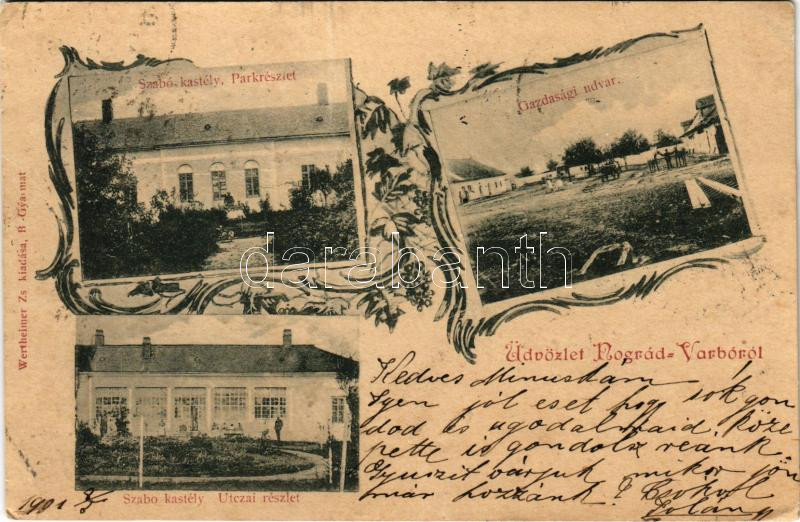 Szabó kastély, Parkrészlet
Gazdasági udvar.
Wertheimer Zs kiadása, B-Gyarmat
darabanth
Üdvözlet Nográd-Varbóról
Kedves Minuskám!
Igen jól eset hogy sok gon
dod és ugodalmaid köze
pette is gondolsz reánk
Gyuszit várjuk mikor jön
már hozzánk? Csókol
Jolán
Szabo kastély Utczai részlet
1901